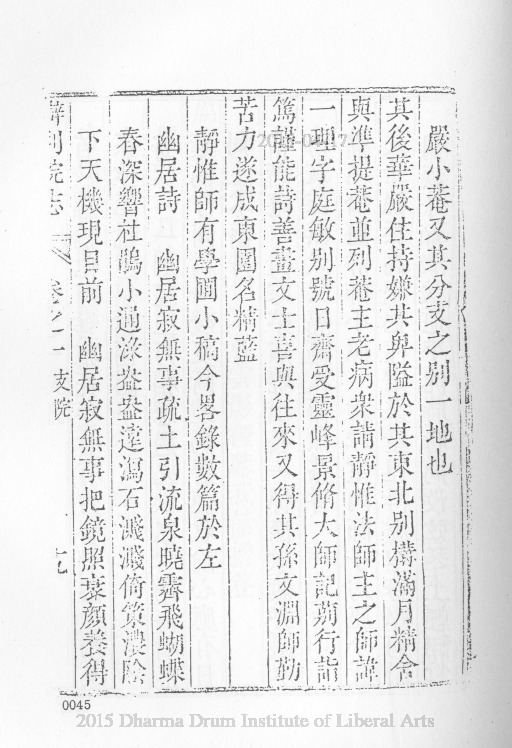 嚴小菴又其分支之別一地也
其後華嚴住持嫌其卑隘於其東北別搆滿月精舍
與準提菴並列菴主老病衆請靜惟法師主之師諱
一理字庭敏別號日齋受靈峰景脩大師記莂行詣
篤謹能詩善畫文士喜與往來又得其孫文淵師勤
苦力遂成東園名精藍
靜惟師有學圃小稿今畧錄數篇於左
幽居詩　幽居寂無事疏土引流泉曉霽飛蝴蝶
春深響杜鵑小通淥澁澁達瀉石濺濺倚策濃陰
下天機現目前　幽居寂無事把鏡照衰顏養得
院志　卷之一　支院　十九
0045
2015 Dharma Drum Institute of Liberal Arts